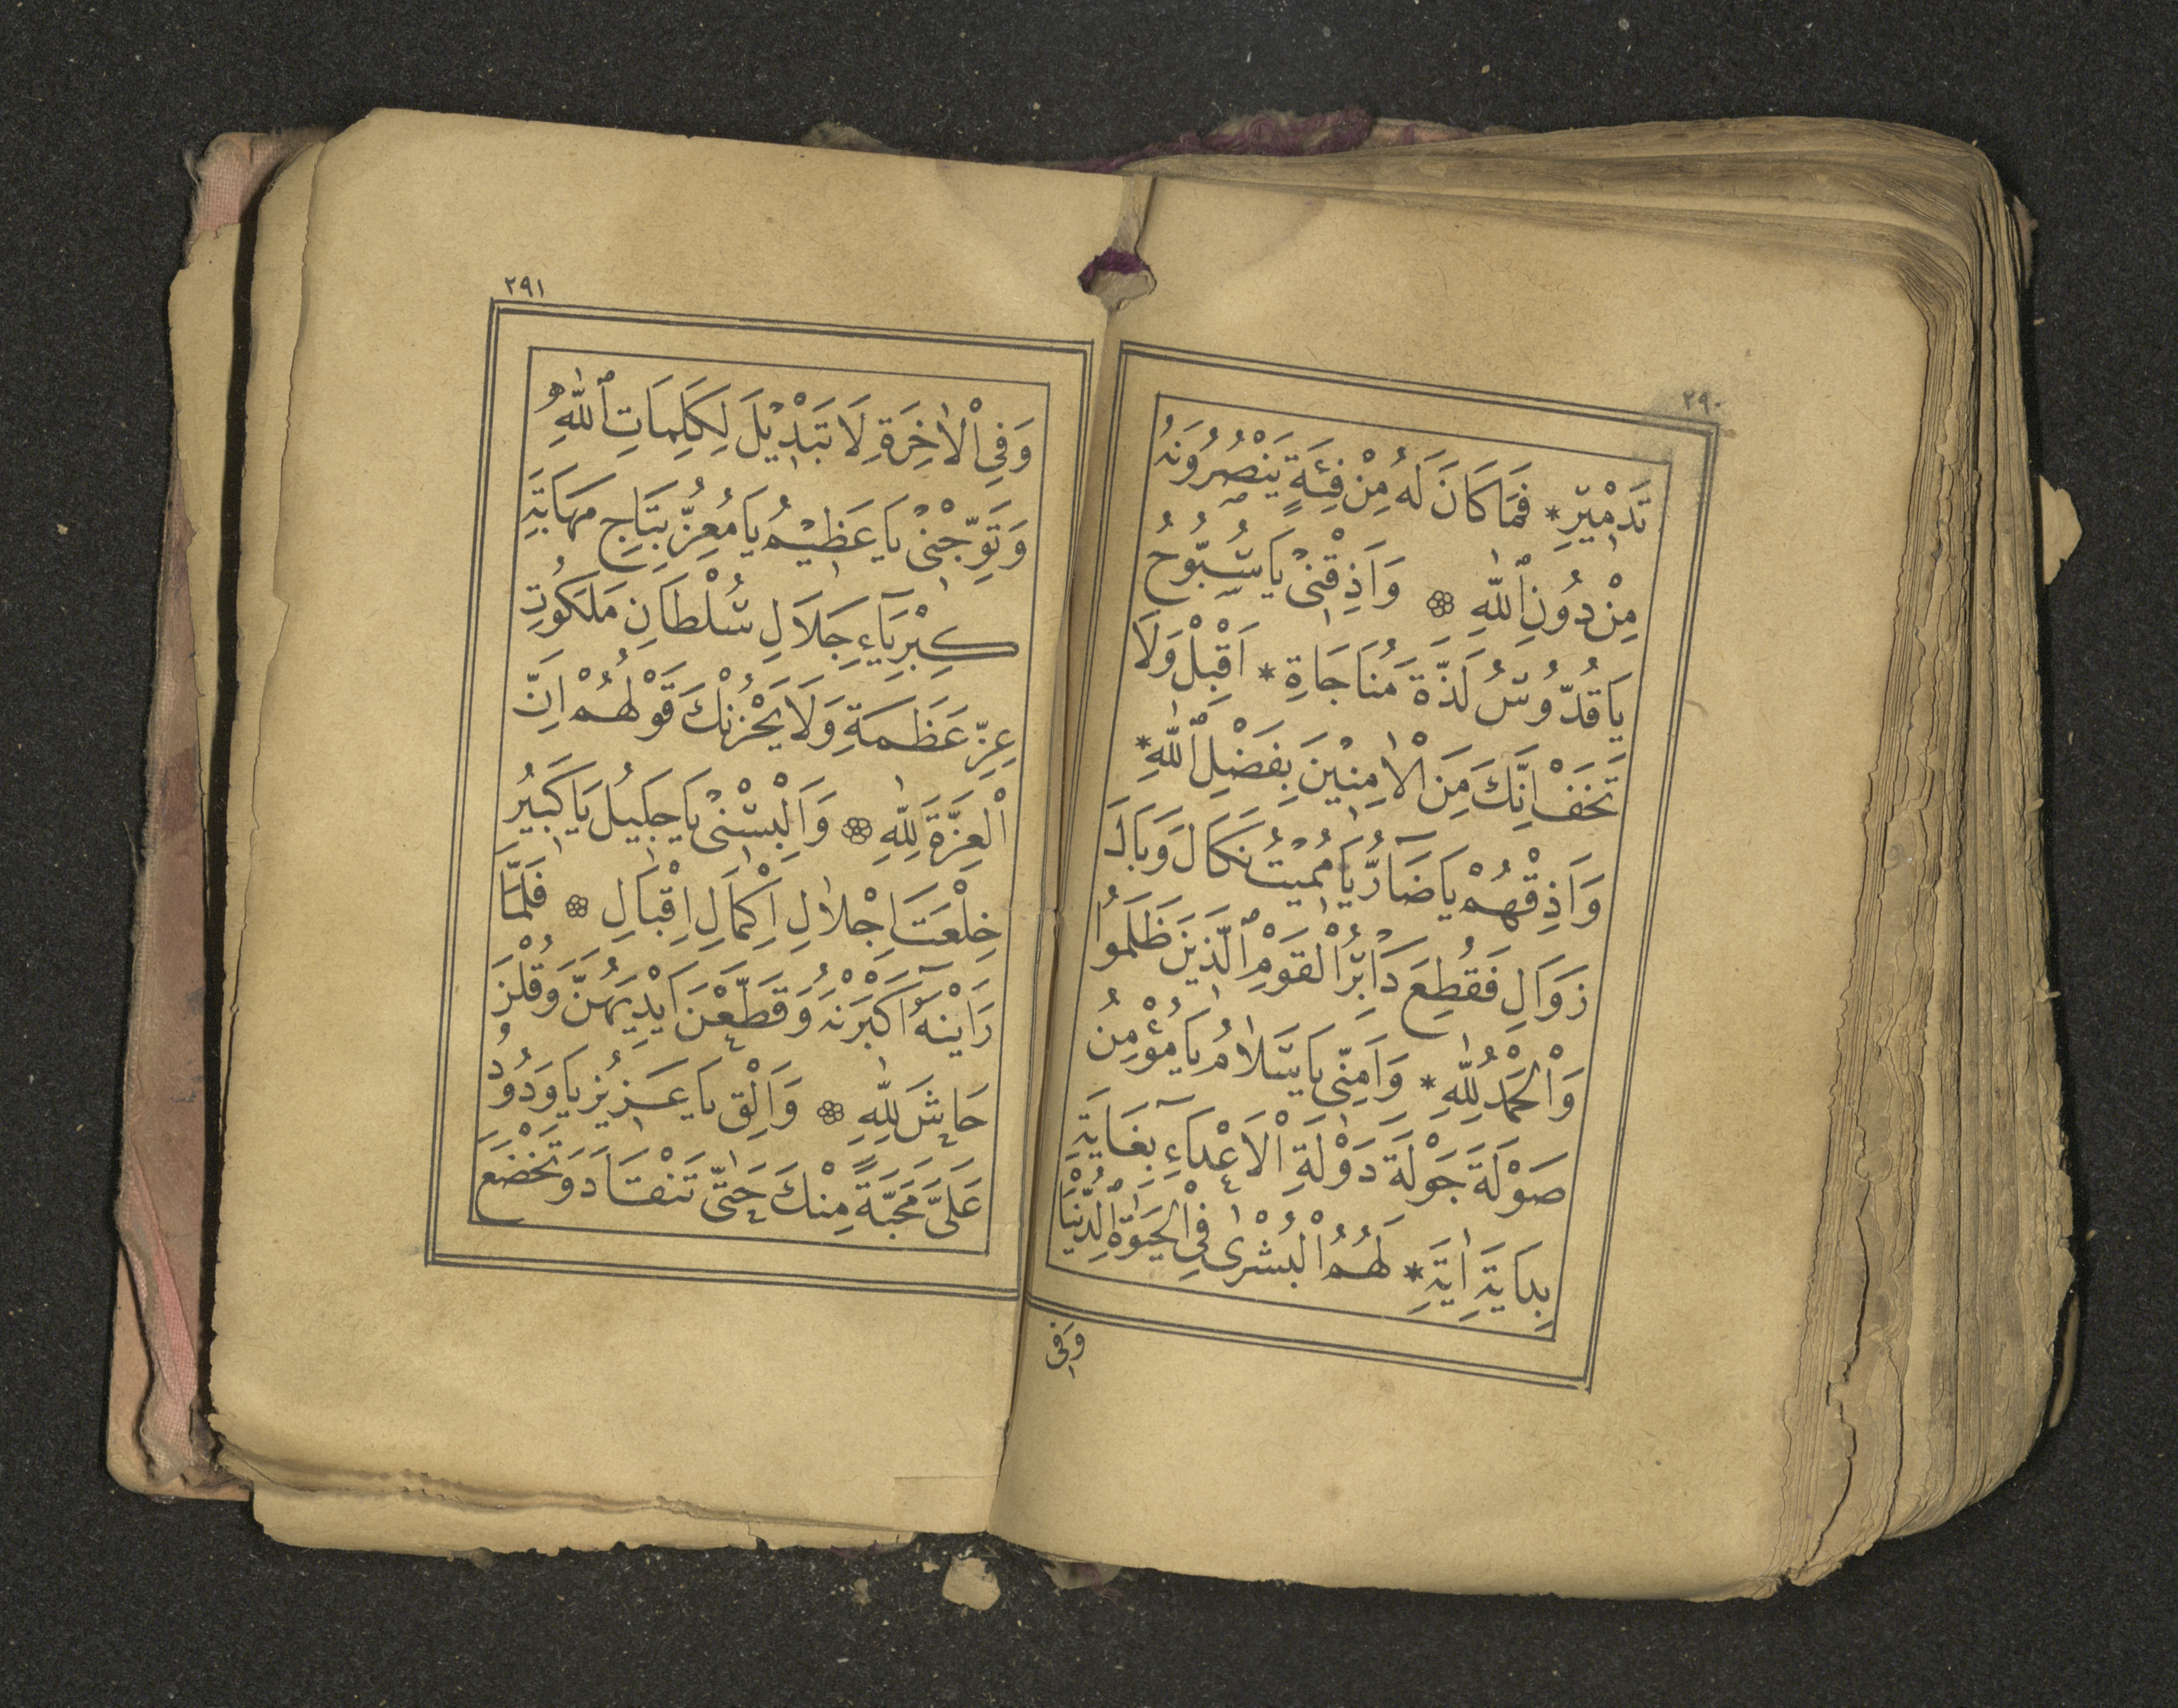 ٢٩٠
تَدْمِيْرِ * فَمَا كَانَ لَهُ مِنْ فِئَةٍ يَنْصُرُونَهُ
مِنْ دُونِ ٱللّٰهِ ۞ وَاَذِقْنِىْ يَا سُبُّوحُ
يَا قُدُّوسُ لَذَّةَ مُنَاجَاةِ * اَقْبِلْ وَلَا
تَخَفْ اِنَّكَ مِنَ الْاٰمِنِيْنَ بِفَضْلِ ٱللّٰهِ *
وَاَذِقْهُمْ يَا ضَآرُّ يَا مُمِيْتُ نَكَالَ وَبَالَ
زَوَالِ فَقُطِعَ دَابِرُ الْقَوْمِ ٱلَّذِيْنَ ظَلَمُوا
وَالْحَمْدُ لِلّٰهِ * وَاٰمِنِّى يَا سَلَامُ يَا مُؤْمِنُ
صَوْلَةَ جَوْلَةَ دَوْلَةِ الْاَعْدَآءِ بِغَايَةِ
بِدَايَةِ اٰيَةِ * لَهُمُ الْبُشْرٰى فِى الْحَيٰوةِ الدُّنْيَا
وَفِى
٢٩١
وَفِى الْاٰخِرَةِ لَا تَبْدِيْلَ لِكَلِمَاتِ ٱللّٰهِ
وَتَوِّجْنِىْ يَا عَظِيْمُ يَا مُعِزُّ بِتَاجِ مَهَابَةِ
كِبْرِيَآءِ جَلَالِ سُلْطَانِ مَلَكُوتِ
عِزِّ عَظَمَةِ وَلَا يَحْزُنْكَ قَوْلُهُمْ اِنَّ
الْعِزَّةَ لِلّٰهِ ۞ وَاَلْبِسْنِىْ يَا جَلِيلُ يَا كَبِيرُ
خِلْعَتَ اِجْلَالِ اِكْمَالِ اِقْبَالِ ۞ فَلَمَّا
رَاَيْنَهُٓ اَكْبَرْنَهُ وَقَطَّعْنَ اَيْدِيَهُنَّ وَقُلْنَ
حَاشَ لِلّٰهِ ۞ وَاَلْقِ يَا عَزِيْزُ يَا وَدُودُ
عَلَىَّ مَحَبَّةً مِنْكَ حَتّٰى تَنْقَادَ وَتَخْضَعَ